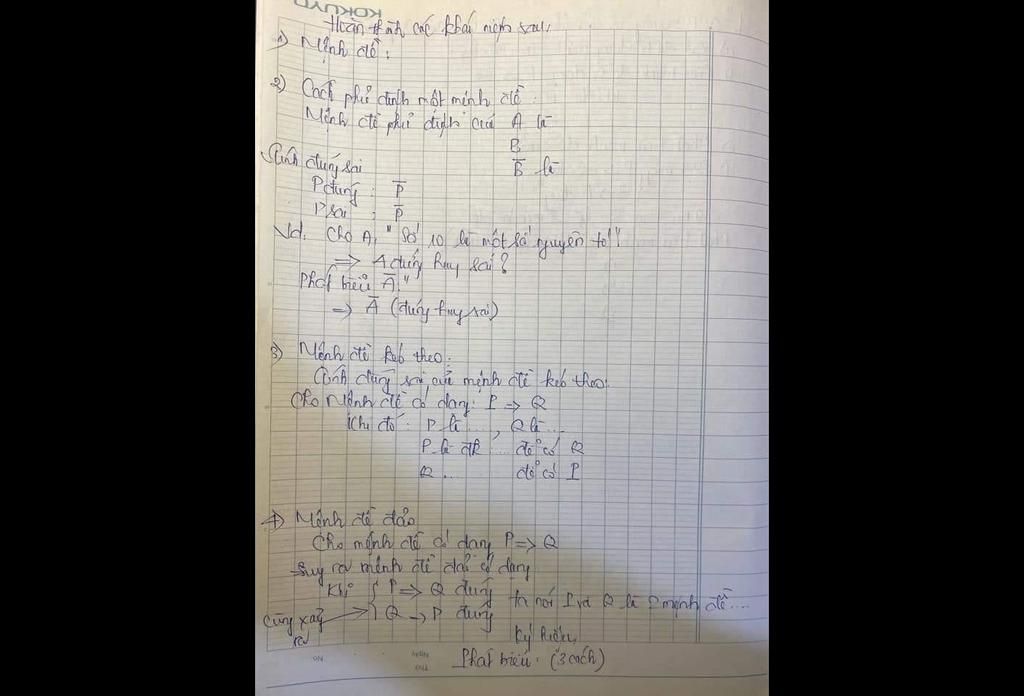 KOKUYO
Hoàn thành các khái niệm sau:
1) Mệnh đề:
2) Cách phủ định một mệnh đề:
Mệnh đề phủ định của A là
B
B̅ là
Tính đúng sai
P đúng : P̅
P sai : P̅
Vd: Cho A: "Số 10 là một số nguyên tố"
=> A đúng hay sai?
Phát biểu A̅: "
=> A̅ (đúng hay sai)
3) Mệnh đề kéo theo:
Tính đúng sai của mệnh đề kéo theo:
Cho mệnh đề có dạng: P => Q
Khi đó: P là ..., Q là ...
P là đk ... để có Q
Q ... để có P
4) Mệnh đề đảo
Cho mệnh đề có dạng P => Q
Suy ra mệnh đề đảo có dạng
Khi { P => Q đúng
cùng xảy ra Q -> P đúng ta nói P và Q là 2 mệnh đề ...
Ký hiệu:
Phát biểu: (3 cách)
No